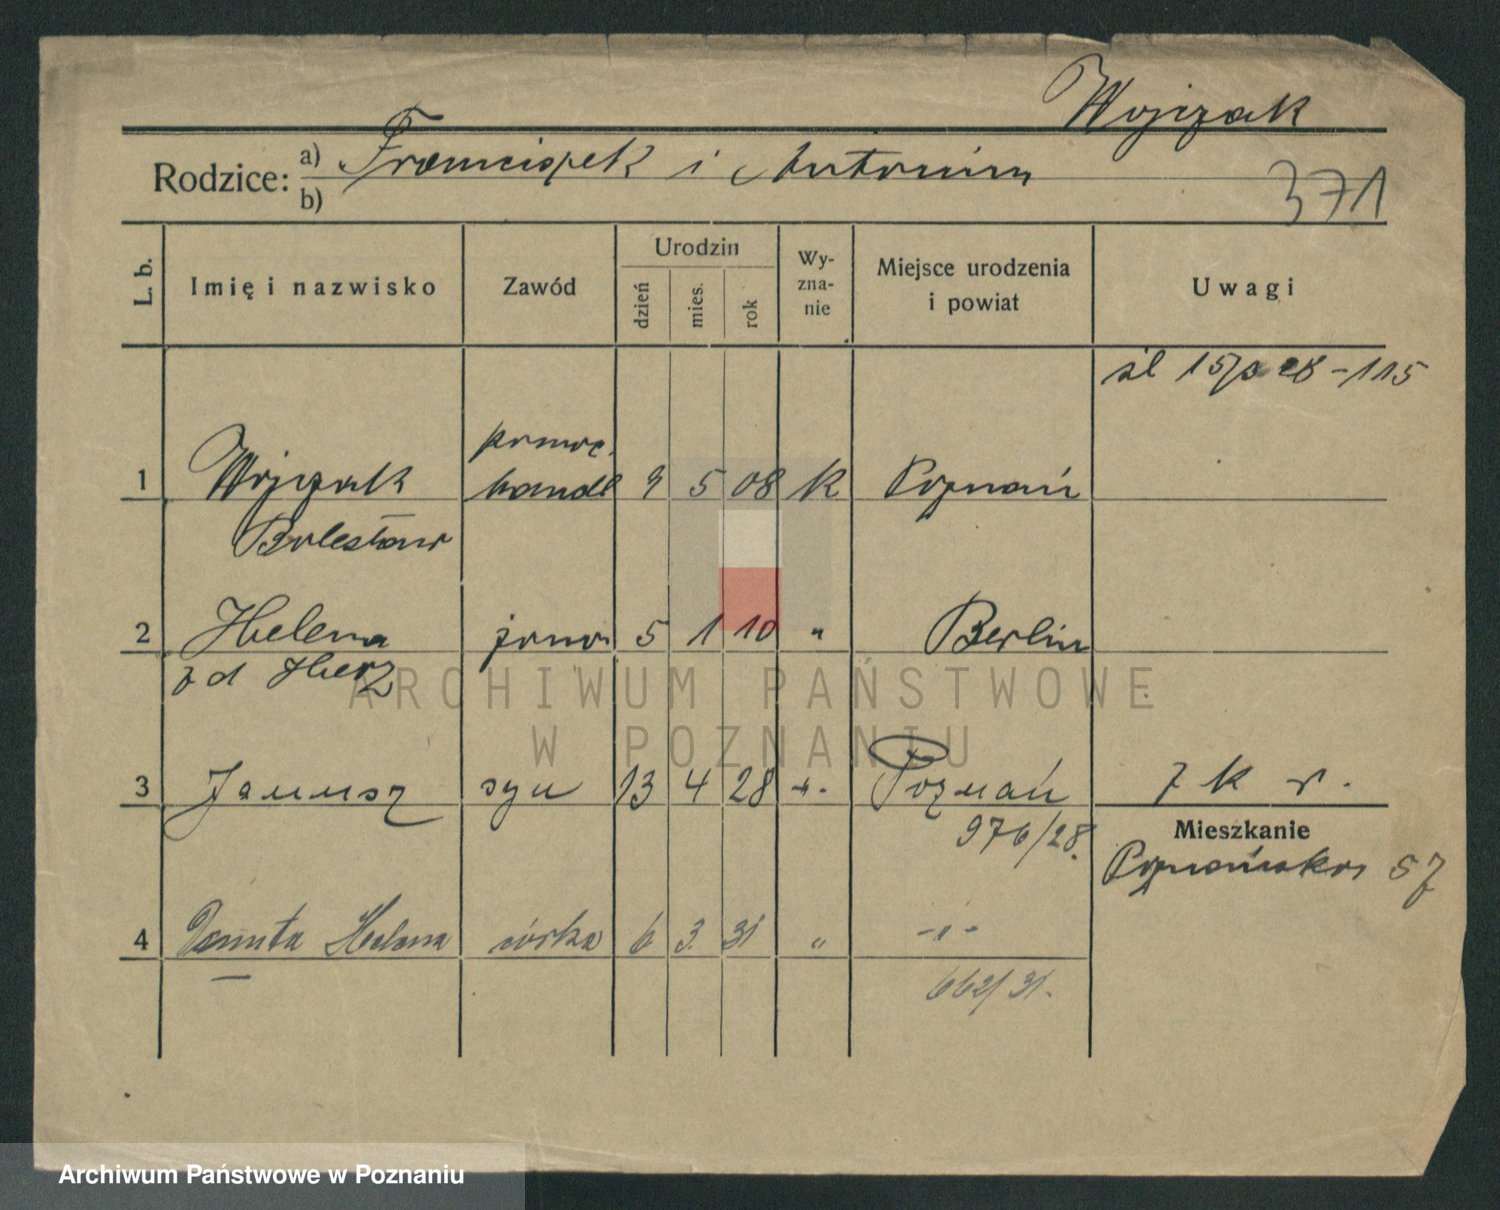 Wojczak
Rodzice: a) Franciszek i Antonina
b)
371
L. b.
Imię i nazwisko
Zawód
Urodzin
dzień
mies.
rok
Wy-
zna-
nie
Miejsce urodzenia
i powiat
Uwagi
śl 15/3 28 - 115
1 Wojczak pomoc. handl 9 5 08 K Poznań
Bolesław
2 Helena żona 5 1 10 " Berlin
z d Herz
3 Janusz syn 13 4 28 -"- Poznań
976/28.
Mieszkanie
Poznańska 57
4 Danuta Helena córka 6 3. 31 " -"-
662/31.
ARCHIWUM PAŃSTWOWE
W POZNANIU
Archiwum Państwowe w Poznaniu